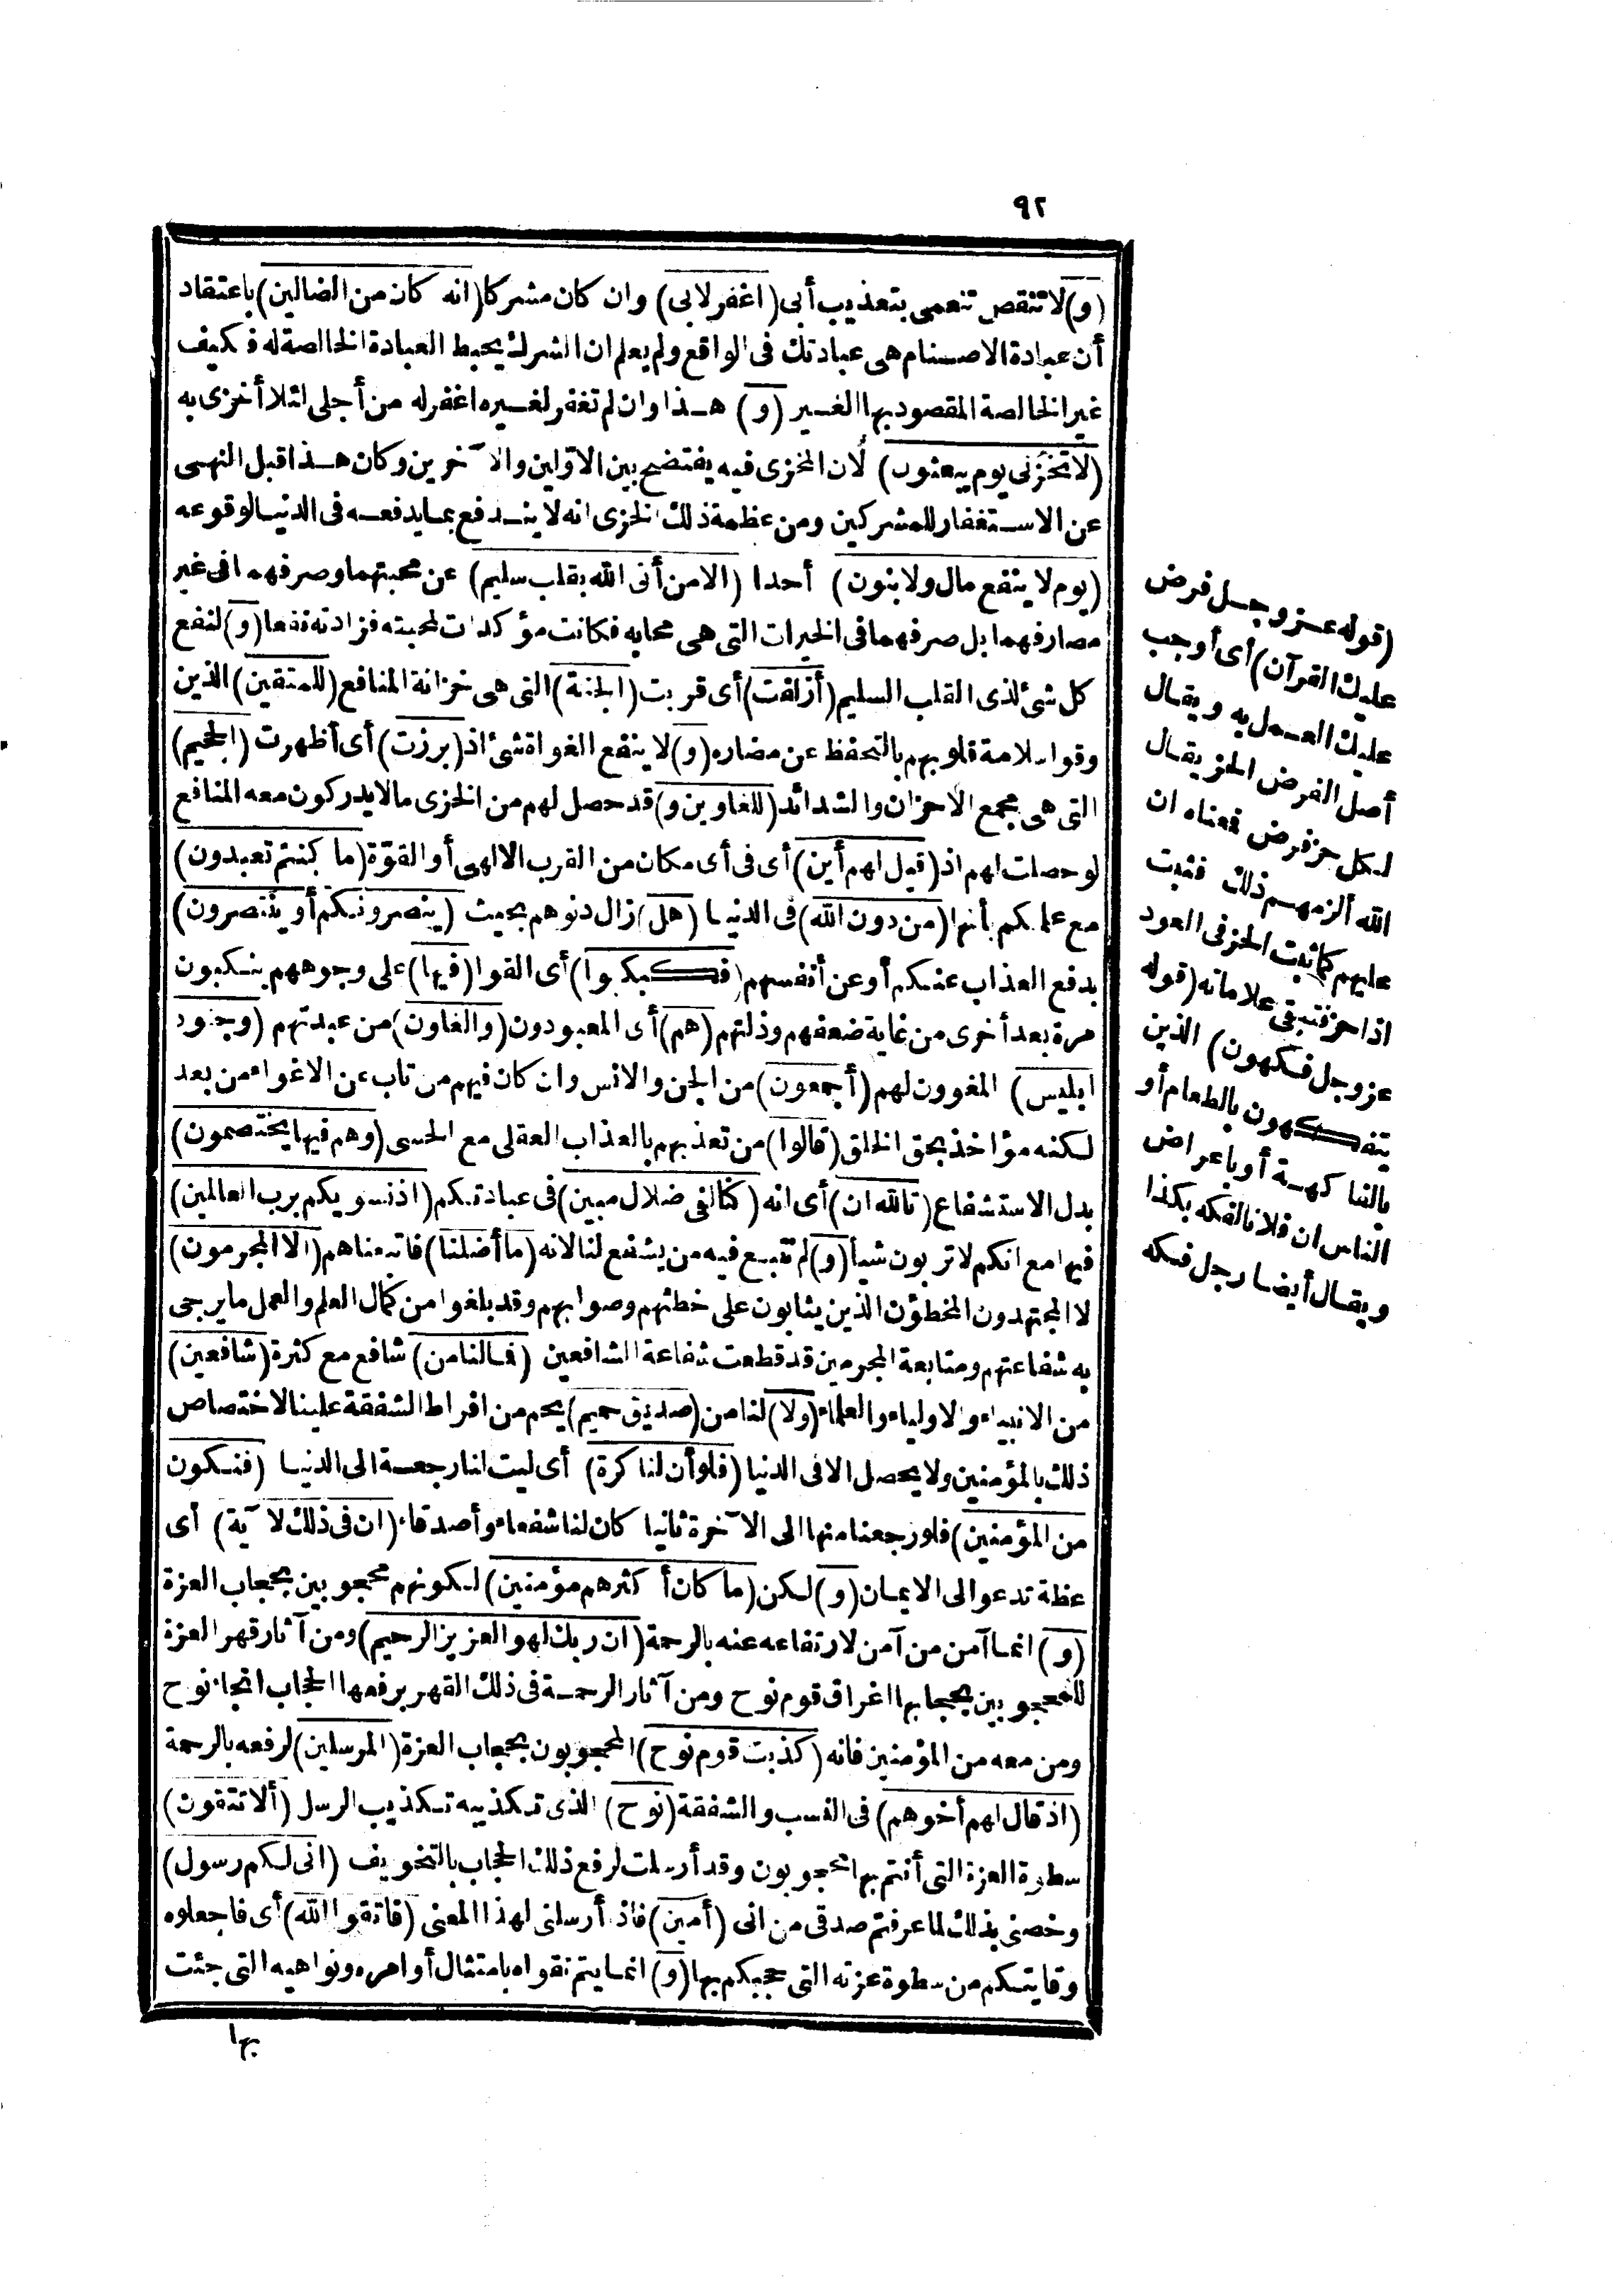 ٩٢
(و) لا تنقص تنعمى بتعذيب أبى (اغفر لابى) وان كان مشركا (انه كان من الضالين) باعتقاد
أن عبادة الاصنام هى عبادتك فى الواقع ولم يعلم ان الشرك يحبط العبادة الخالصة له فكيف
غير الخالصة المقصود بها الغير (و) هذا وان لم تغفر لغيره اغفر له من أجلى لئلا أخزى به
(لا تخزنى يوم يبعثون) لان المخزى فيه يفتضح بين الاوّلين والآخرين وكان هذا قبل النهى
عن الاستغفار للمشركين ومن عظمة ذلك الخزى انه لا يندفع بما يدفعه فى الدنيا لوقوعه
(يوم لا ينفع مال ولا بنون) أحدا (الا من أتى الله بقلب سليم) عن محبتهما وصرفهما فى غير
مصارفهما بل صرفهما فى الخيرات التى هى محابه فكانت مؤكدات لمحبته فزادته نفعا (و) لنفع
كل شئ لذى القلب السليم (أزلفت) أى قربت (الجنة) التى هى خزانة المنافع (للمتقين) الذين
وقوا سلامة قلوبهم بالتحفظ عن مضاره (و) لا ينفع الغواة شئ اذ (برزت) أى أظهرت (الجحيم)
التى هى مجمع الاحزان والشدائد (للغاوين و) قد حصل لهم من الخزى ما لا يدركون معه المنافع
لو حصلت لهم اذ (قيل لهم أين) أى فى أى مكان من القرب الالهى أو القوّة (ما كنتم تعبدون)
مع علمكم بأنها (من دون الله) فى الدنيا (هل) زال دنوهم بحيث (ينصرونكم أو ينتصرون)
بدفع العذاب عنكم أو عن أنفسهم (فكبكبوا) أى القوا (فيها) على وجوههم ينكبون
مرة بعد أخرى من غاية ضعفهم وذلتهم (هم) أى المعبودون (والغاون) من عبدتهم (وجنود
ابليس) المغوون لهم (أجمعون) من الجن والانس وان كان فيهم من تاب عن الاغواء من بعد
لكنه مؤاخذ بحق الخلق (قالوا) من تعذبهم بالعذاب العقلى مع الحسى (وهم فيها يختصمون)
بدل الاستشفاع (تالله ان) أى انه (كنا لفى ضلال مبين) فى عبادتكم (اذ نسويكم برب العالمين)
فيها مع انكم لا تربون شيأ (و) لم نتبع فيه من يشفع لنا لانه (ما أضلنا) فاتبعناهم (الا المجرمون)
لا المجتهدون المخطؤن الذين يثابون على خطئهم وصوابهم وقد بلغوا من كمال العلم والعمل ما يرجى
به شفاعتهم ومتابعة المجرمين قد قطعت شفاعة الشافعين (فما لنا من) شافع مع كثرة (شافعين)
من الانبياء والاولياء والعلماء (ولا) لنا من (صديق حميم) يحم من افراط الشفقة علينا لاختصاص
ذلك بالمؤمنين ولا يحصل الا فى الدنيا (فلو أن لنا كرة) أى ليت لنا رجعة الى الدنيا (فنكون
من المؤمنين) فلو رجعنا منها الى الآخرة ثانيا كان لنا شفعاء وأصدقاء (ان فى ذلك لآية) أى
عظة تدعو الى الايمان (و) لكن (ما كان أكثرهم مؤمنين) لكونهم محجوبين بحجاب العزة
(و) انما آمن من آمن لارتفاعه عنه بالرحمة (ان ربك لهو العزيز الرحيم) ومن آثار قهر العزة
للمحجوبين بحجابها اغراق قوم نوح ومن آثار الرحمة فى ذلك القهر برفعها الحجاب انجاء نوح
ومن معه من المؤمنين فانه (كذبت قوم نوح) المحجوبون بحجاب العزة (المرسلين) لرفعه بالرحمة
(اذ قال لهم أخوهم) فى النسب والشفقة (نوح) الذى تكذيبه تكذيب الرسل (ألا تتقون)
سطوة العزة التى أنتم بها محجوبون وقد أرسلت لرفع ذلك الحجاب بالتخويف (انى لكم رسول)
وخصنى بذلك لما عرفتم صدقى من انى (أمين) فاذ أرسلنى لهذا المعنى (فاتقوا الله) أى فاجعلوه
وقايتكم من سطوة عزته التى حجبكم بها (و) انما يتم تقواه بامتثال أوامره ونواهيه التى جئت
بها
(قوله عز وجل فرض
عليك القرآن) أى أوجب
عليك العمل به ويقال
أصل الفرض الحز يقال
لكل حز فرض فمعناه ان
الله ألزمهم ذلك فثبت
عليهم كما ثبت الحز فى العود
اذا حز فتبقى علاماته (قوله
عز وجل فكهون) الذين
يتفكهون بالطعام أو
بالفاكهة أو باعراض
الناس ان فلانا لفكه بكذا
ويقال أيضا رجل فكه